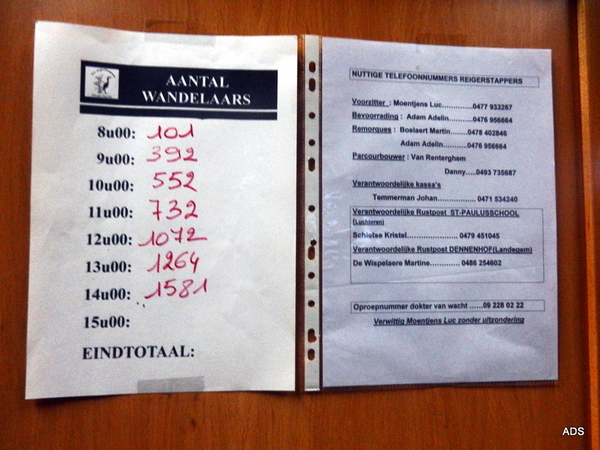 AANTAL
WANDELAARS
8u00: 101
9u00: 392
10u00: 552
11u00: 732
12u00: 1072
13u00: 1264
14u00: 1581
15u00:
EINDTOTAAL:
NUTTIGE TELEFOONNUMMERS REIGERSTAPPERS
Voorzitter : Moentjens Luc.............0477 933267
Bevoorrading : Adam Adelin..........0476 956664
Remorques : Boelaert Martin........0478 402846
Adam Adelin...........0476 956664
Parcourbouwer : Van Renterghem
Danny.....0493 735687
Verantwoordelijke kassa's
Temmerman Johan................ 0471 534240
Verantwoordelijke Rustpost ST-PAULUSSCHOOL
Schietse Kristel................. 0479 451045
Verantwoordelijke Rustpost DENNENHOF(Landegem)
De Wispelaere Martine............. 0486 254602
Oproepnummer dokter van wacht ......09 228 02 22
Verwittig Moentjens Luc zonder uitzondering
ADS